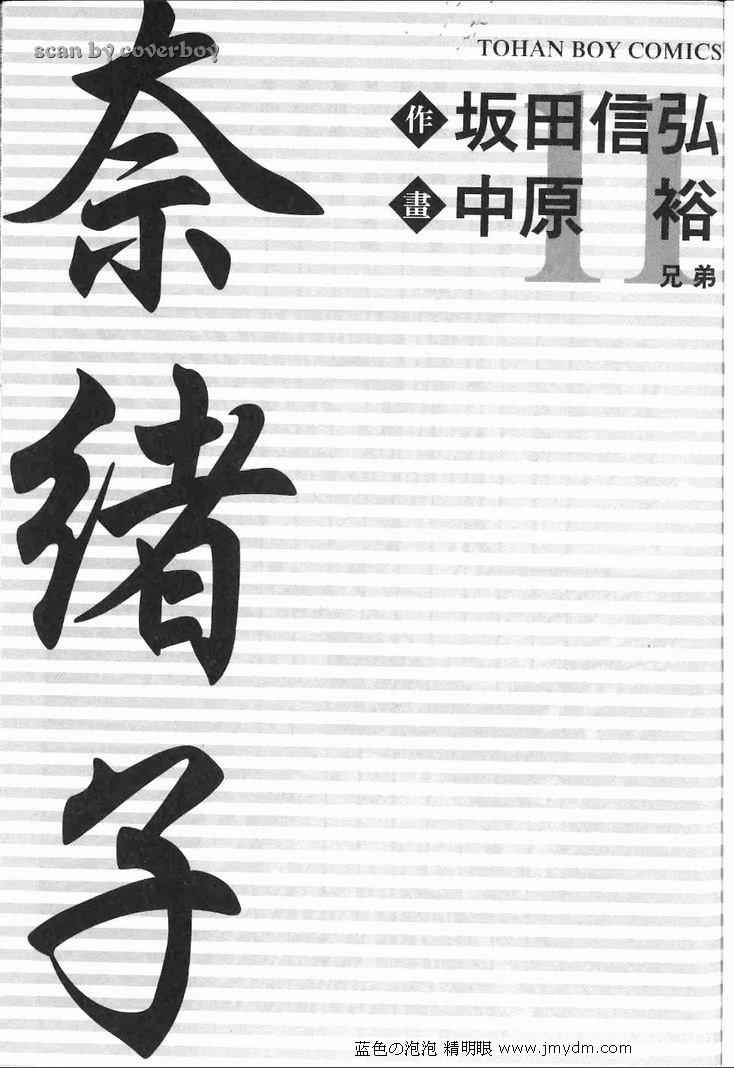 scan by coverboy
TOHAN BOY COMICS
作 坂田信弘
畫 中原 裕
11
兄弟
奈緒子
蓝色の泡泡 精明眼 www.jmydm.com